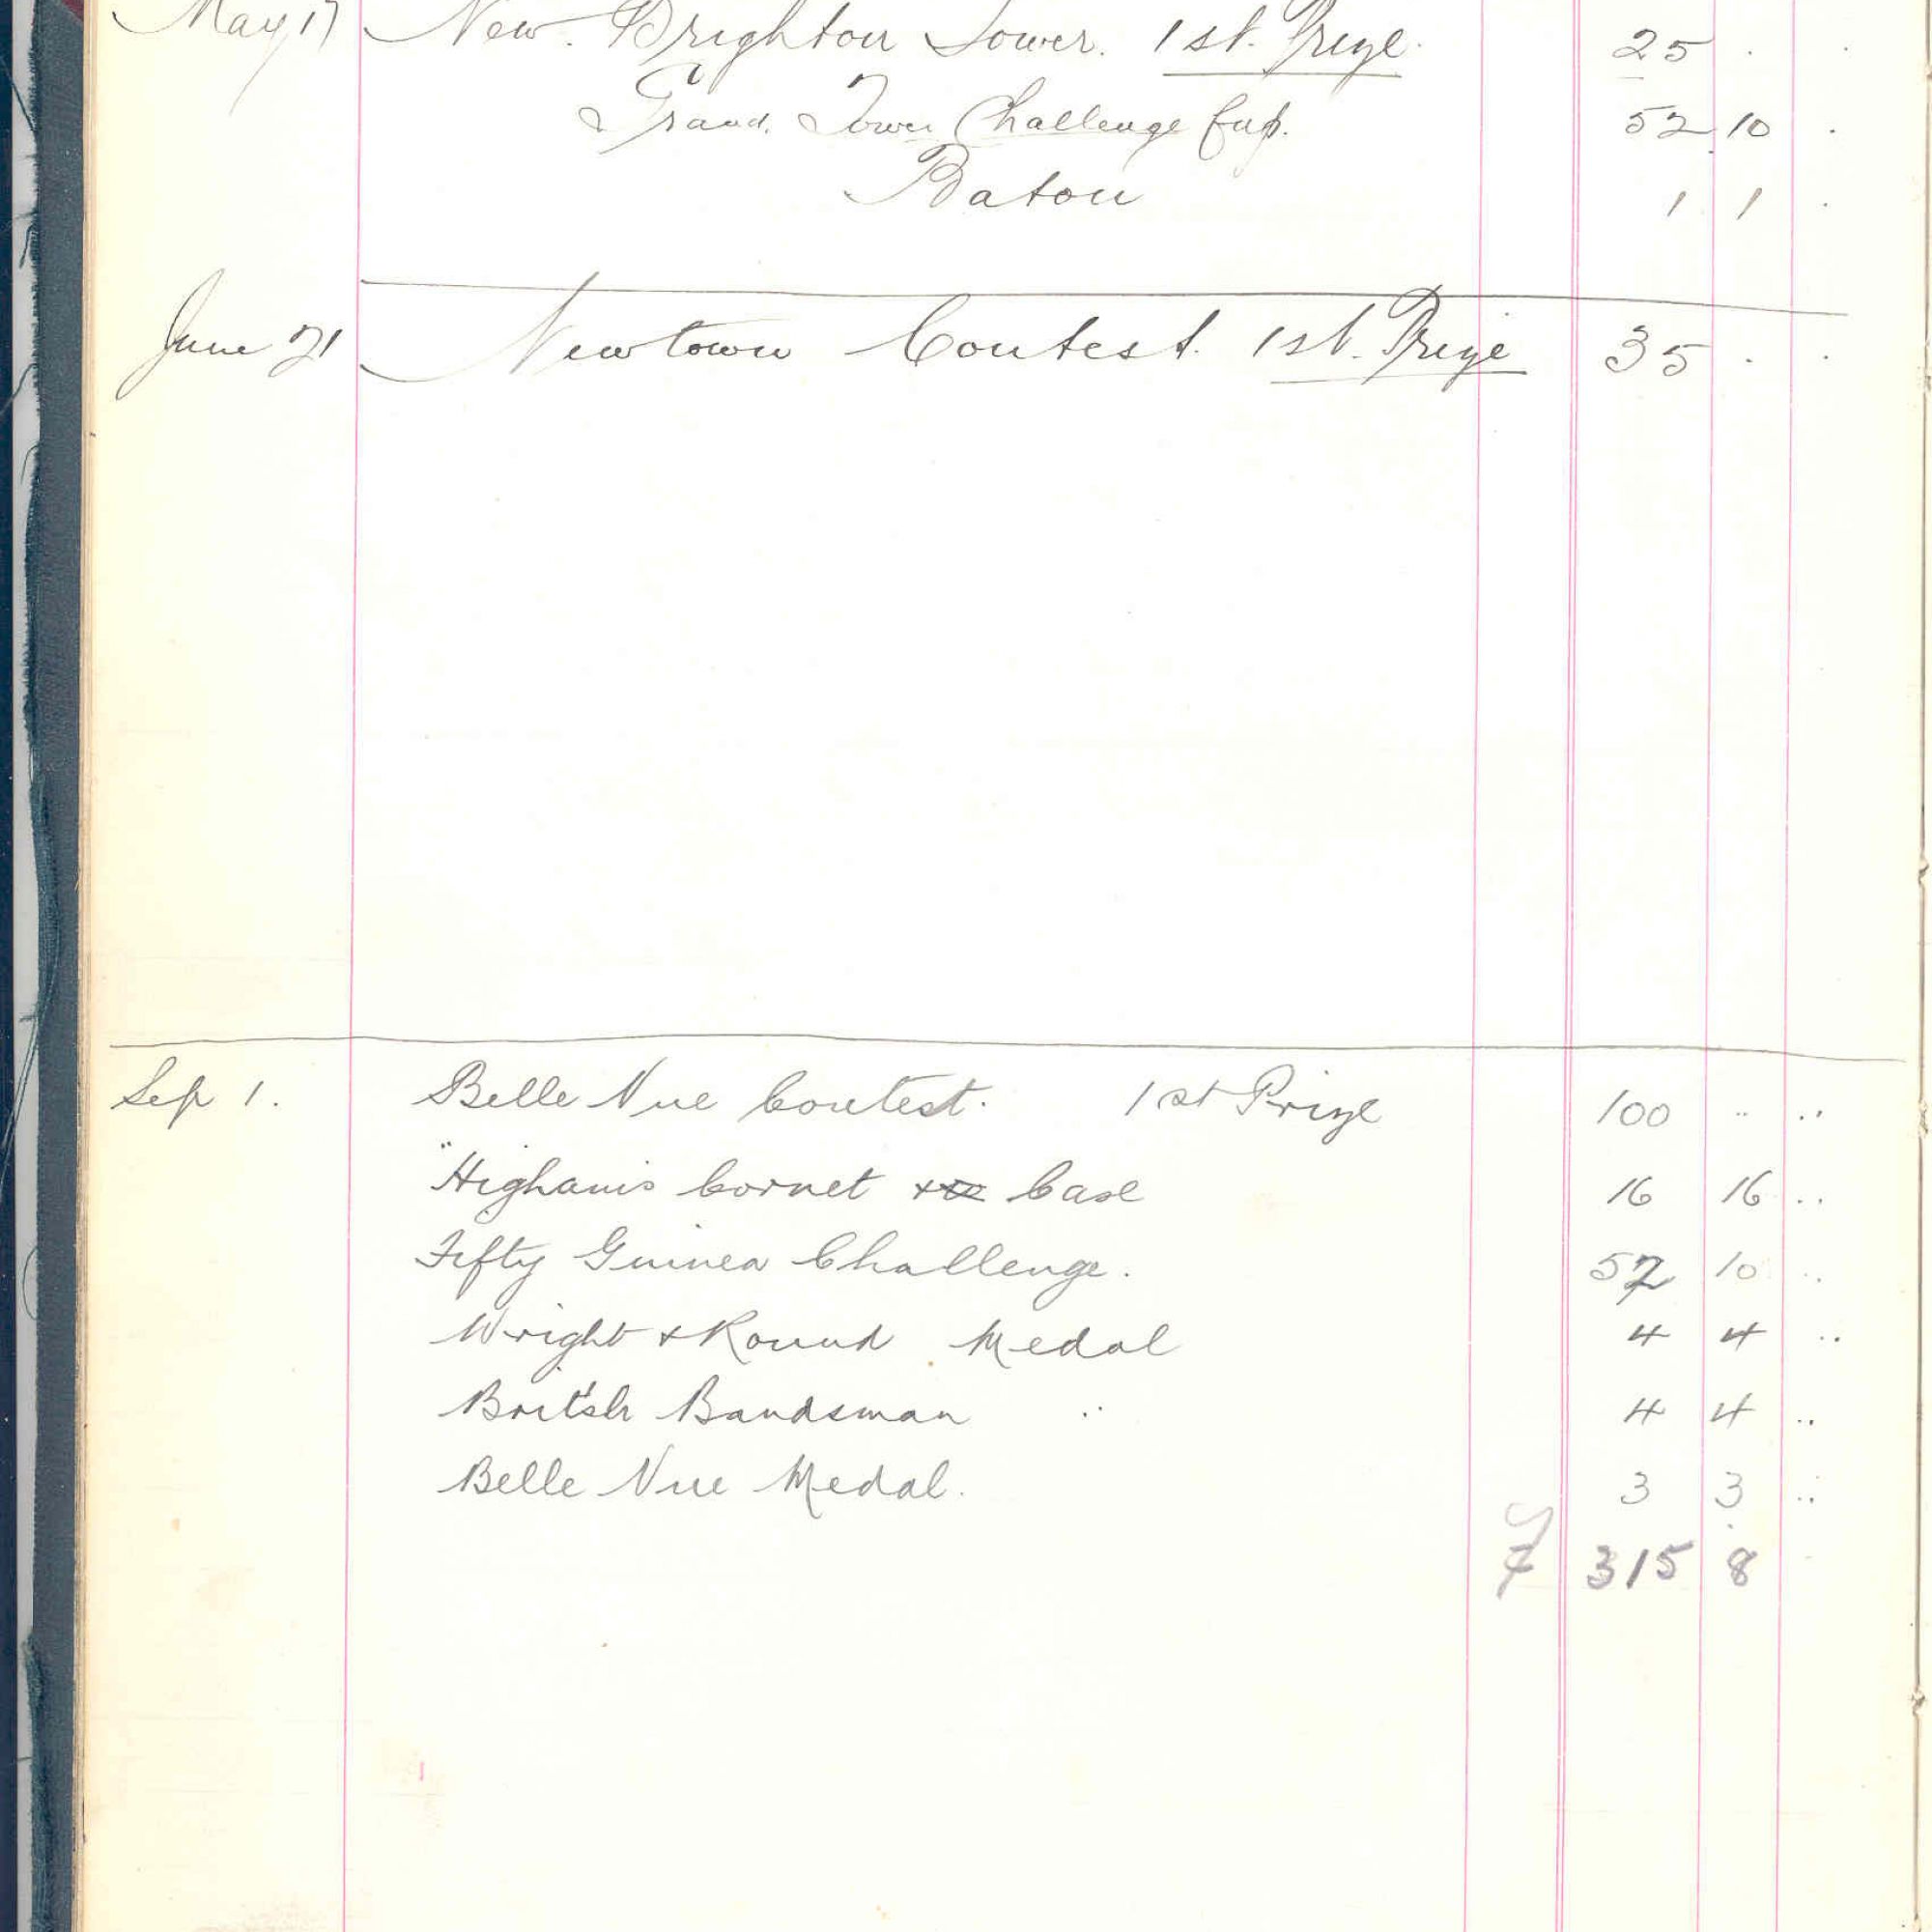 May 17 New Brighton Tower. 1st. Prize. 25 . .
& Grand. Tower Challenge Cup. 52 10 .
Baton 1 1 .
June 21 Newtown Contest. 1st. Prize 35 . .
Sep 1. Belle Vue Contest. 1st Prize 100 .. ..
"Highams Cornet & Case 16 16 ..
Fifty Guinea Challenge. 52 10 ..
Wright & Round Medal 4 4 ..
British Bandsman .. 4 4 ..
Belle Vue Medal. 3 3 ..
£ 315 8